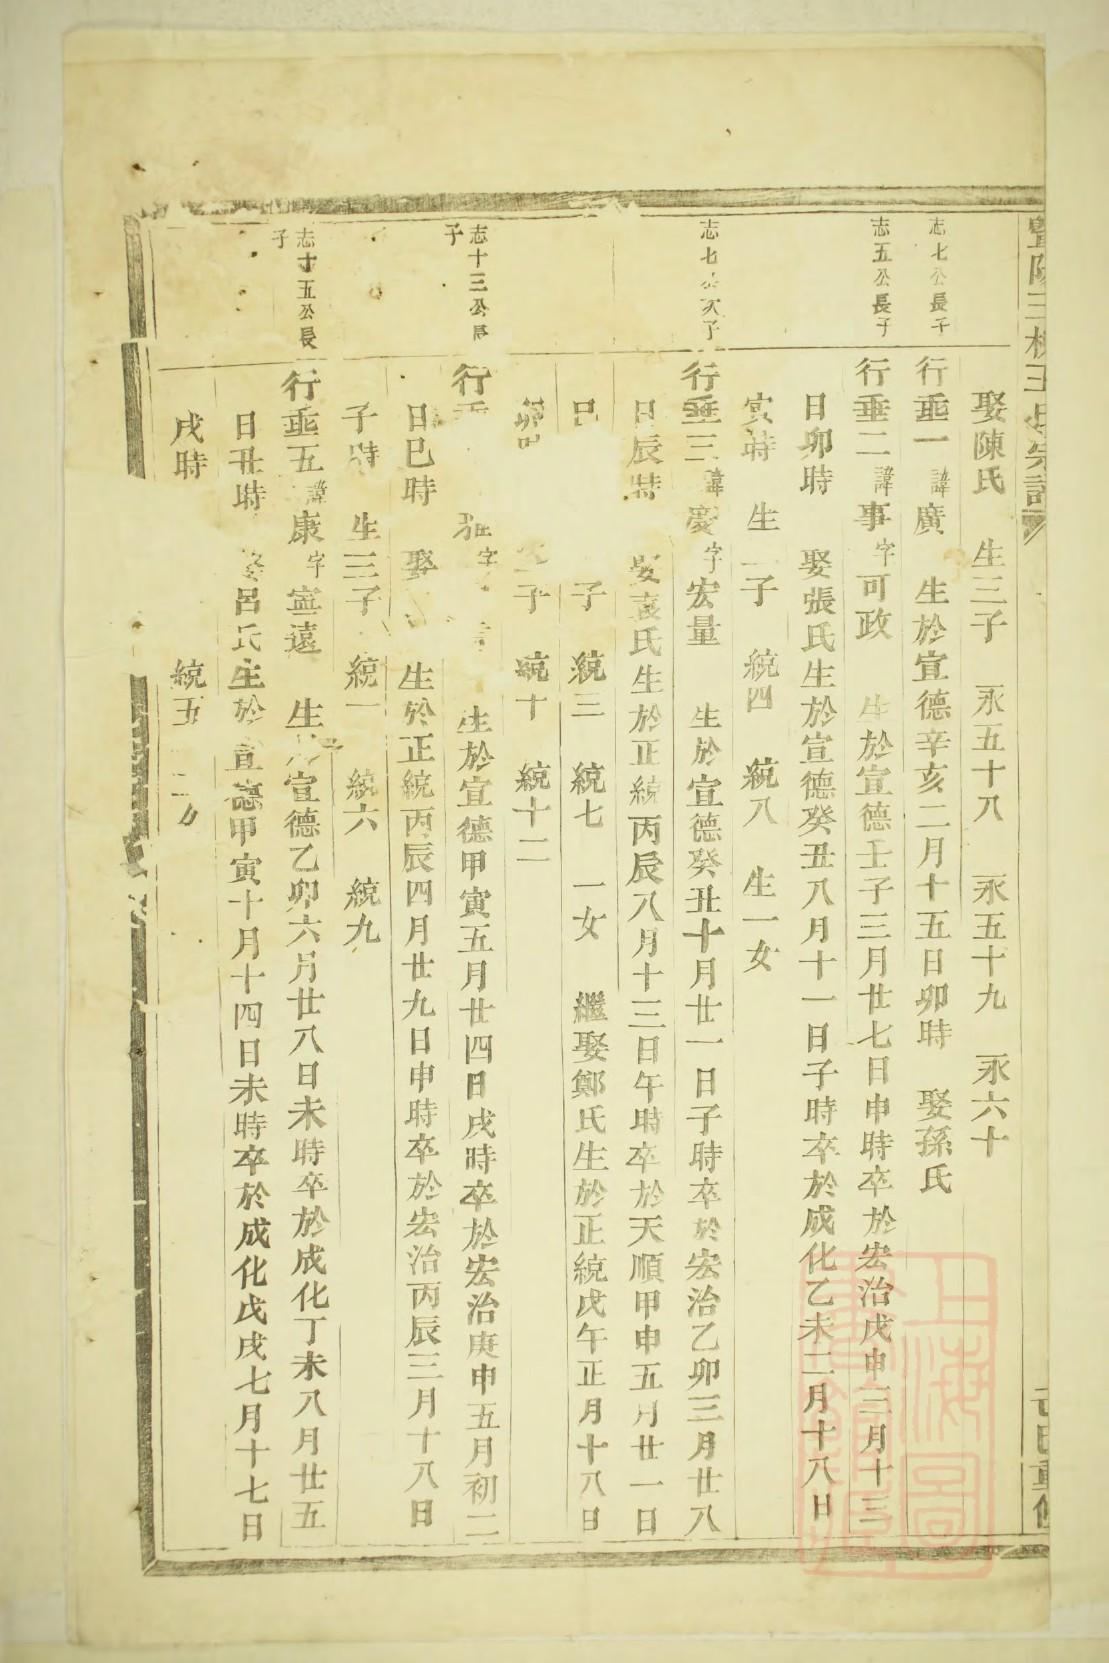 娶陳氏 生三子 永五十八 永五十九 永六十
志七公長子
行垂一 諱廣 生於宣德辛亥二月十五日卯時 娶孫氏
志五公長子
行垂二 諱事 字可政 生於宣德壬子三月廿七日申時卒於宏治戊申三月十三
日卯時 娶張氏生於宣德癸丑八月十一日子時卒於成化乙未二月十八日
寅時 生 子 統四 統八 生一女
志七公次子
行垂三 諱慶 字宏量 生於宣德癸丑十月廿一日子時卒於宏治乙卯三月廿八
日辰時 娶袁氏生於正統丙辰八月十三日午時卒於天順甲申五月廿一日
子 統三 統七 一女 繼娶鄭氏生於正統戊午正月十八日
子 統十 統十二
志十三公長子
行垂 字 生於宣德甲寅五月廿四日戌時卒於宏治庚申五月初二
日巳時 娶 生於正統丙辰四月廿九日申時卒於宏治丙辰三月十八日
子時 生三子 統一 統六 統九
志十五公長子
行垂五 諱康 字寧遠 生於宣德乙卯六月廿八日未時卒於成化丁未八月廿五
日丑時 娶呂氏生於宣德甲寅十月十四日未時卒於成化戊戌七月十七日
戌時 統五